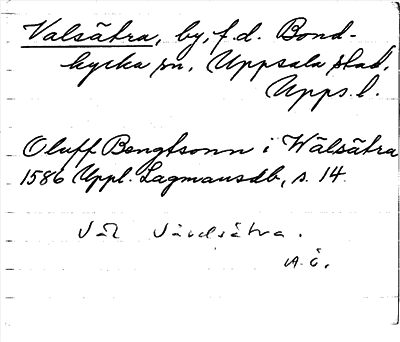 Valsätra, by, f.d. Bond-
kyrka sn, Uppsala stad,
Upps. l.
Oluff Bengtsonn i Wälsätra
1586 Uppl. Lagmansdb, s. 14.
Väl Vårdsätra.
A.Ö.